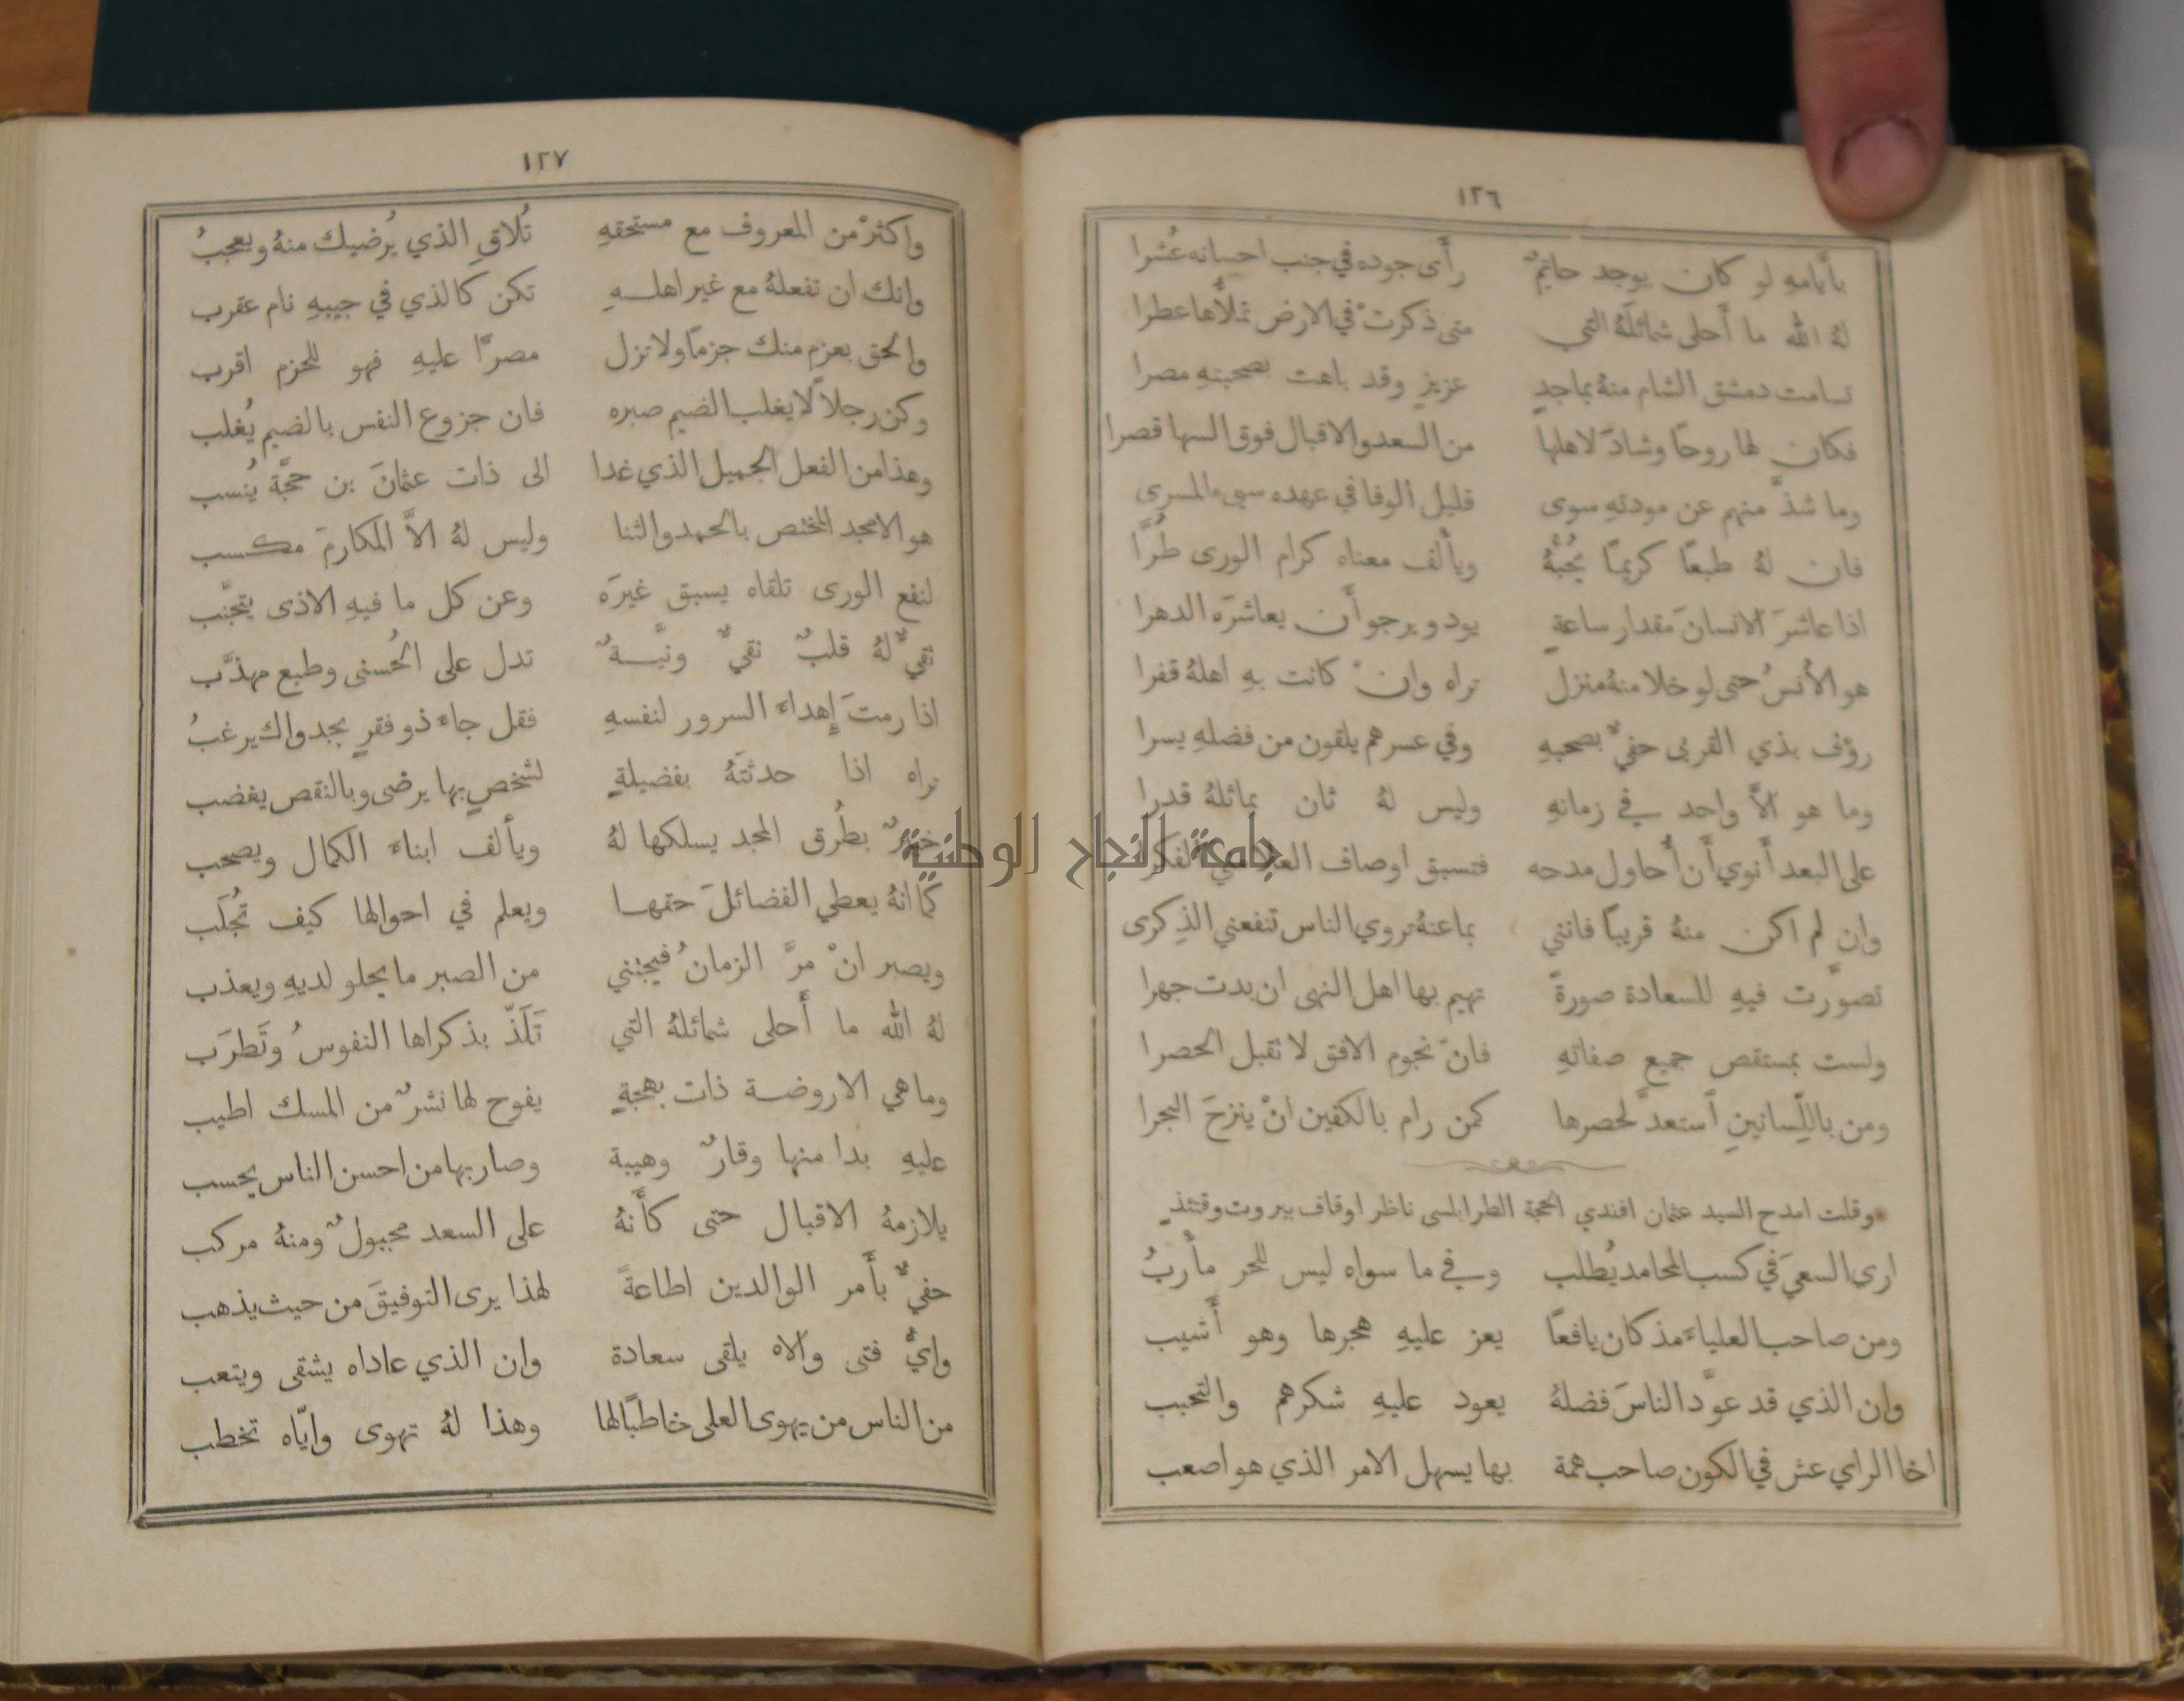 ١٢٦
بأيامهِ لو كان يوجد حاتمٌ رأى جوده في جنب احسانه عُشرا
لهُ الله ما أحلى شمائلَهُ التي متى ذكرتْ في الارض تملأُها عطرا
تسامت دمشق الشام منهُ بماجدٍ عزيزٍ وقد باهت بصحبتهِ مصرا
فكان لها روحًا وشادَ لاهلها من السعد والاقبال فوق السها قصرا
وما شذَّ منهم عن مودتهِ سوى قليل الوفا في عهده سيء المسرى
فان لهُ طبعًا كريمًا يُحُبُّهُ ويألف معناه كرام الورى طُرًّا
اذا عاشرَ الانسانَ مقدار ساعةٍ يود ويرجو أن يعاشرَه الدهرا
هو الأُنسُ حتى لو خلا منهُ منزل تراه وانْ كانت بهِ اهلهُ قفرا
رؤف بذي القربى حفيٌّ بصحبهِ وفي عسرهم يلقون من فضلهِ يسرا
وما هو الاَّ واحد في زمانهِ وليس لهُ ثان يماثلهُ قدرا
على البعد أنوي أن أُحاول مدحه فتسبق اوصاف العلا مني الفكرا
وان لم اكن منهُ قريبًا فانني بما عنهُ تروي الناس تنفعني الذِكرى
تصوَّرت فيهِ للسعادة صورةً تهيم بها اهل النهى ان بدت جهرا
ولست بمستقص جميع صفاتهِ فانّ نجوم الافق لا تقبل الحصرا
ومن باللِّسانينِ أستعدَّ لحصرها كمن رام بالكفين انْ ينزحَ البحرا
وقلت امدح السيد عثمان افندي الحجة الطرابلسى ناظر اوقاف بيروت وقتئذٍ
ارى السعيَ في كسب المحامد يُطلب وفي ما سواه ليس للحر مأربُ
ومن صاحب العلياءَ مذ كان يافعًا يعز عليهِ هجرها وهو أَشيب
وان الذي قد عوَّد الناسَ فضلهُ يعود عليهِ شكرهم والتحبب
اخا الراي عش في الكون صاحب همة بها يسهل الامر الذي هو اصعب
١٢٧
واكثرْ من المعروف مع مستحقهِ تُلاقِ الذي يُرضيك منهُ ويعجبُ
وانك ان تفعلهُ مع غير اهلـهِ تكن كالذي في جيبهِ نام عقرب
والحق بعزم منك جزمًا ولا تزل مصرًّا عليهِ فهو للحزم اقرب
وكن رجلاً لا يغلب الضيم صبره فان جزوع النفس بالضيم يُغلب
وهذا من الفعل الجميل الذي غدا الى ذات عثمانَ بن حجَّة يُنسب
هو الامجد المختص بالحمد والثنا وليس لهُ الاَّ المكارمَ مكسب
لنفع الورى تلقاه يسبق غيرَه وعن كل ما فيهِ الاذى يتجنَّب
تقيٌّ لهُ قلبٌ نقيٌّ ونيَّـةٌ تدل على الحُسنى وطبع مهذَّب
اذا رمتَ إِهداءَ السرور لنفسهِ فقل جاءَ ذو فقرٍ بجدواك يرغبُ
تراه اذا حدثتَهُ بفضيلةٍ لشخصٍ بها يرضى وبالنقص يغضب
خبيرٌ بطُرق المجد يسلكها لهُ ويألف ابناءَ الكمال ويصحب
كما انهُ يعطي الفضائلَ حقهـا ويعلم في احوالها كيف تُجلَب
ويصبر انْ مرَّ الزمانُ فيجتني من الصبر ما يحلو لديهِ ويعذب
لهُ الله ما أَحلى شمائلهُ التي تَلَذّ بذكراها النفوسُ وتَطرَب
وما هي الا روضـة ذات بهجةٍ يفوح لها نشرٌ من المسك اطيب
عليهِ بدا منها وقارٌ وهيبة وصار بها من احسن الناس يحسب
يلازمهُ الاقبال حتى كأَنهُ على السعد مجبولٌ ومنهُ مركب
حفيٌّ بأَمر الوالدين اطاعةً لهذا يرى التوفيقَ من حيث يذهب
وايُّ فتى والاه يلقى سعادة وان الذي عاداه يشقى ويتعب
من الناس من يهوى العلى خاطبًا لها وهذا لهُ تهوى وايّاه تخطب
جامعة النجاح الوطنية